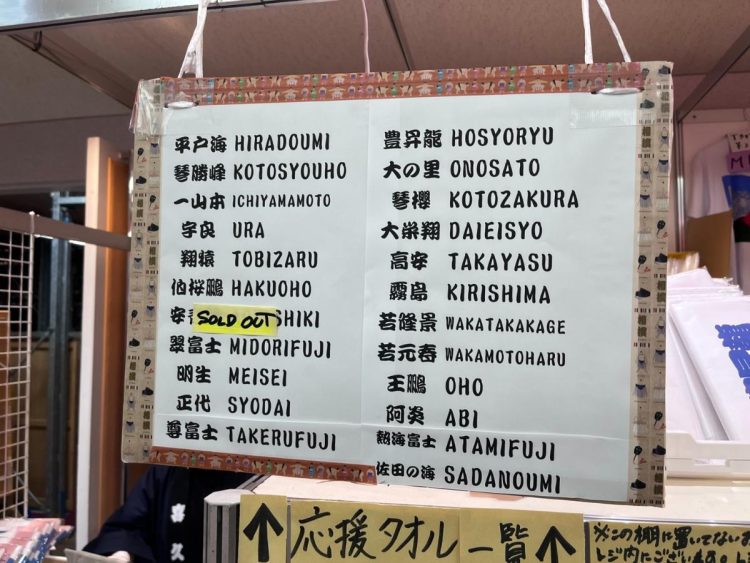 平戸海 HIRADOUMI
琴勝峰 KOTOSYOUHO
一山本 ICHIYAMAMOTO
宇良 URA
翔猿 TOBIZARU
伯桜鵬 HAKUOHO
安 SOLD OUT SHIKI
翠富士 MIDORIFUJI
明生 MEISEI
正代 SYODAI
尊富士 TAKERUFUJI
豊昇龍 HOSYORYU
大の里 ONOSATO
琴櫻 KOTOZAKURA
大栄翔 DAIEISYO
高安 TAKAYASU
霧島 KIRISHIMA
若隆景 WAKATAKAKAGE
若元春 WAKAMOTOHARU
王鵬 OHO
阿炎 ABI
熱海富士 ATAMIFUJI
佐田の海 SADANOUMI
↑応援タオル一覧↑
※この棚に置いてない
レジ内にございます。